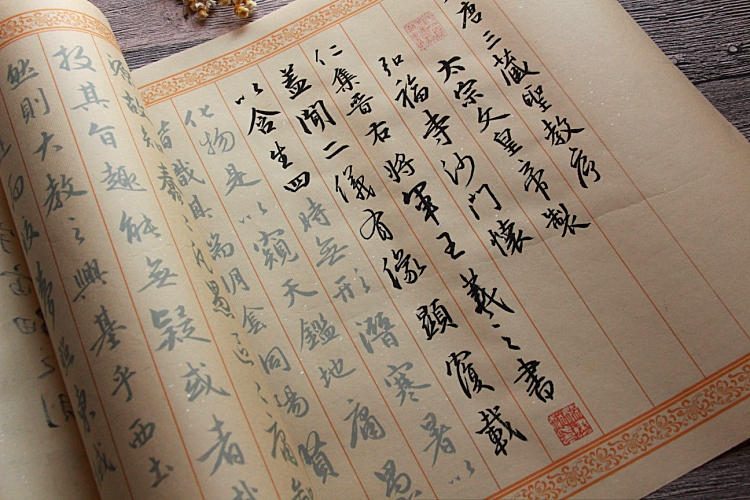 唐三藏聖教序
太宗文皇帝製
弘福寺沙門懷
仁集晉右將軍王羲之書
蓋聞二儀有像顯覆載
以含生四時無形潛寒暑以
化物是以窺天鑑地庸愚
皆識其端明陰洞陽賢
蠢蠢凡愚區區庸
投其旨趣能無疑或者哉
然則大教之興基乎西土
夢照東域